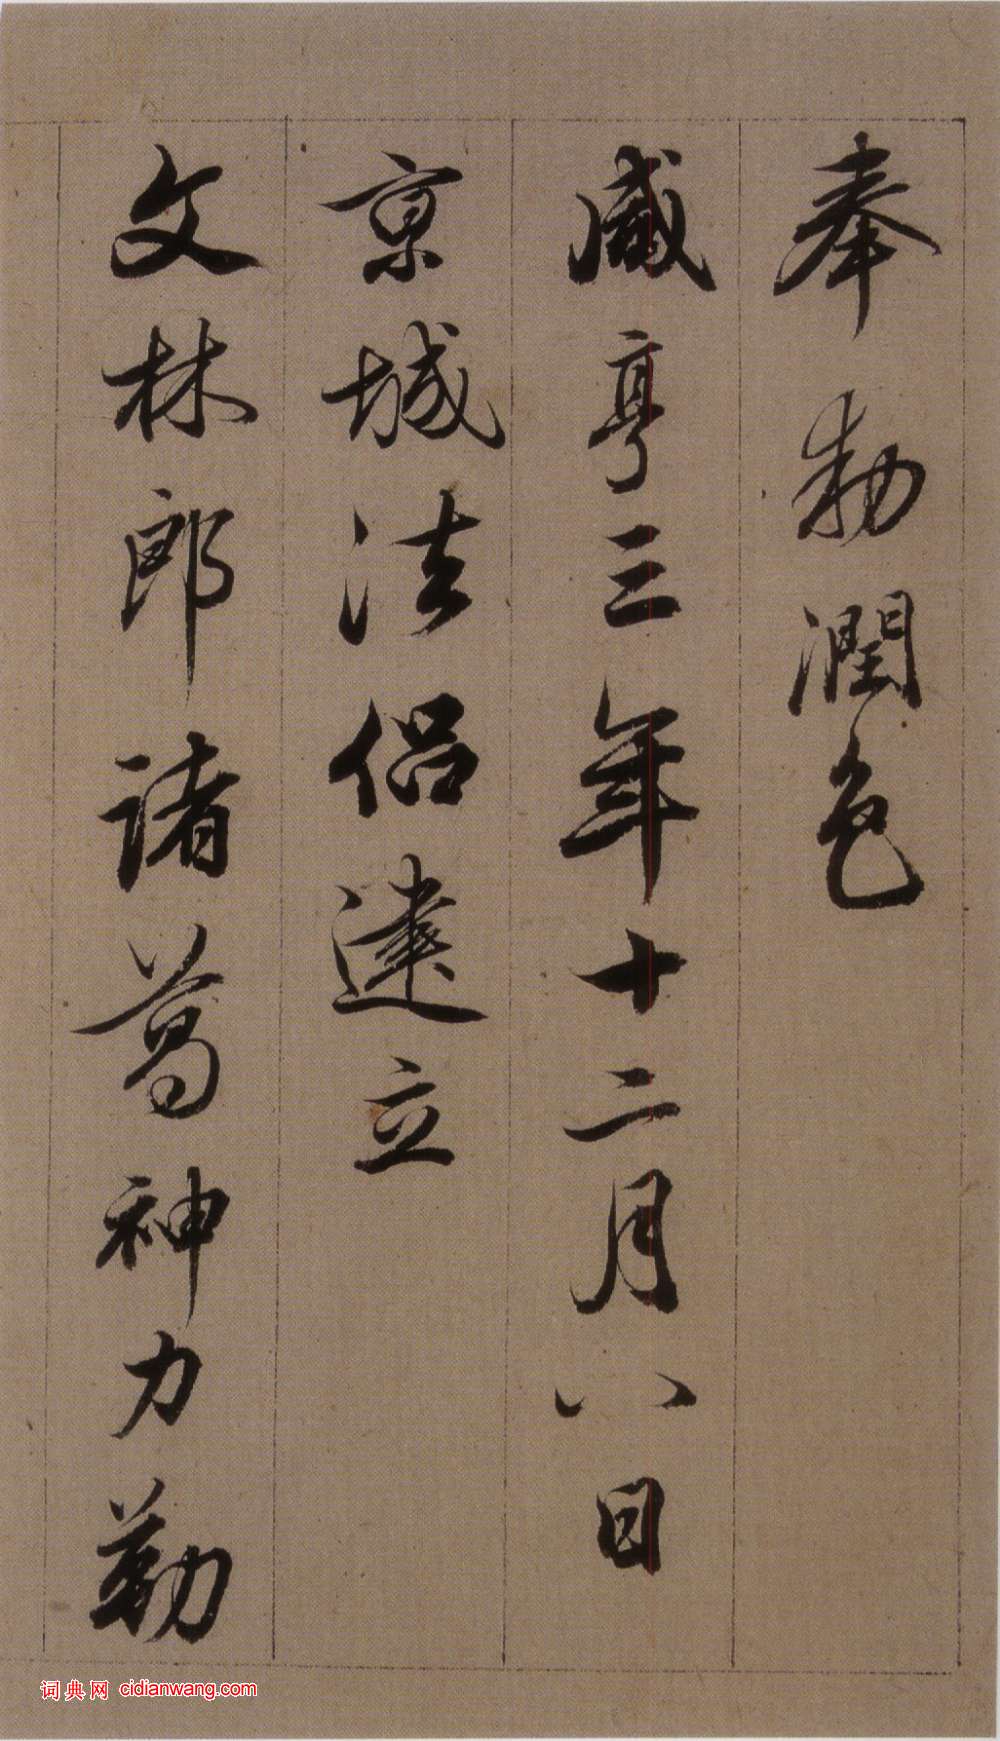 奉勑潤色
咸亨三年十二月八日
京城法侣建立
文林郎諸葛神力勒
词典网 cidianwang.com